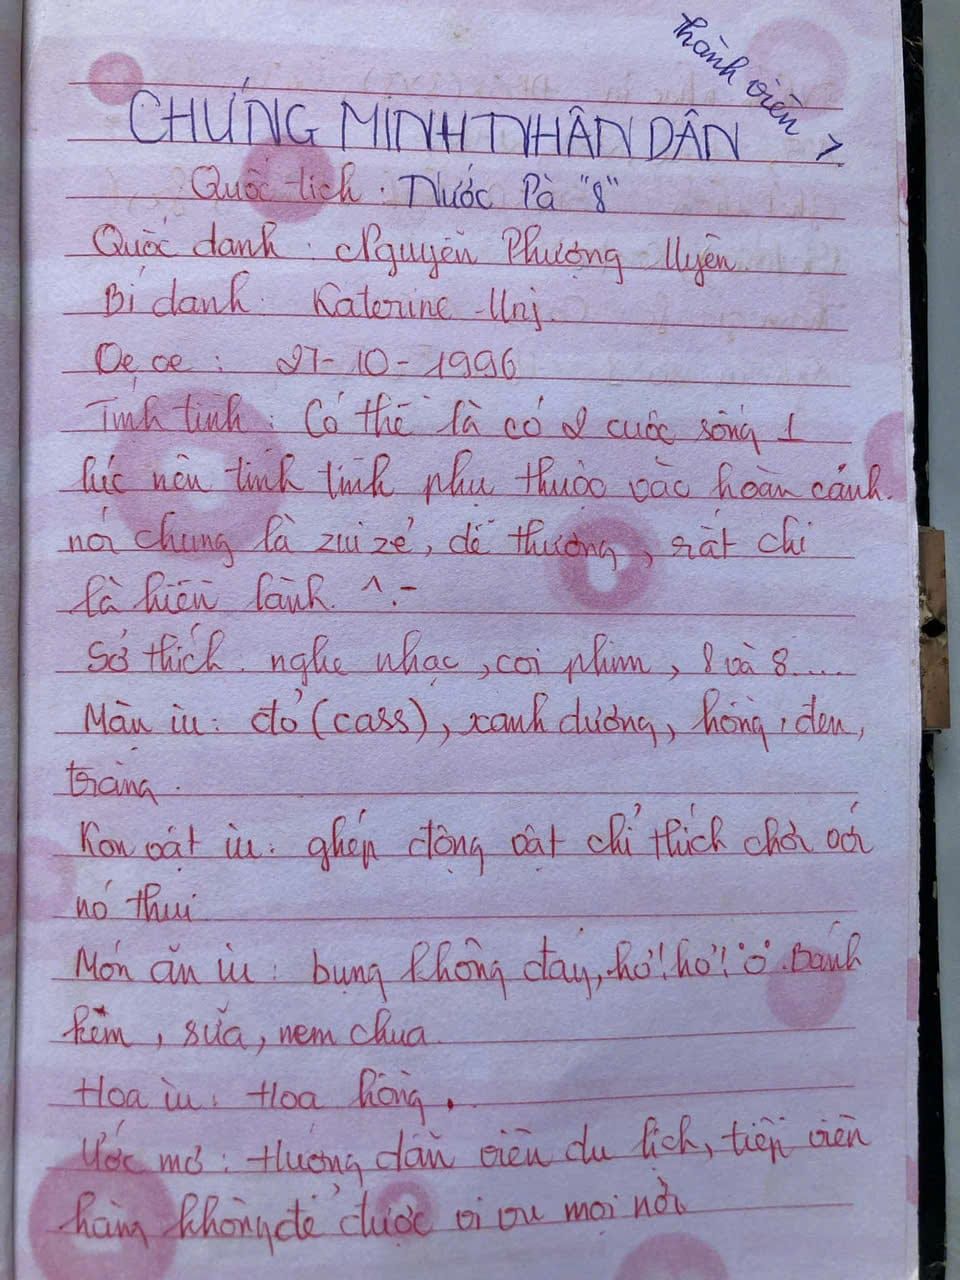 thành viên >
CHỨNG MINH NHÂN DÂN
Quốc tịch : Nước Pà "8"
Quốc danh : Nguyễn Phượng Uyên
Bí danh : Katerine - Uni.
Oe oe : 27-10-1996
Tính tình : Có thể là có 2 cuộc sống 1
lúc nên tính tình phụ thuộc vào hoàn cảnh.
nói chung là zui zẻ, dễ thương, rất chi
là hiền lành. ^.-
Sở thích : nghe nhạc, coi phim, 8 và 8....
Màu iu : đỏ (cass), xanh dương, hồng, đen,
trắng.
Kon vật iu : ghép động vật chỉ thích chơi với
nó thui
Món ăn iu : bụng không đáy, hơ! hơ! Bánh
kem, sữa, nem chua.
Hoa iu : Hoa hồng.
Ước mơ : Hướng dẫn viên du lịch, tiếp viên
hàng không để được vi vu mọi nơi